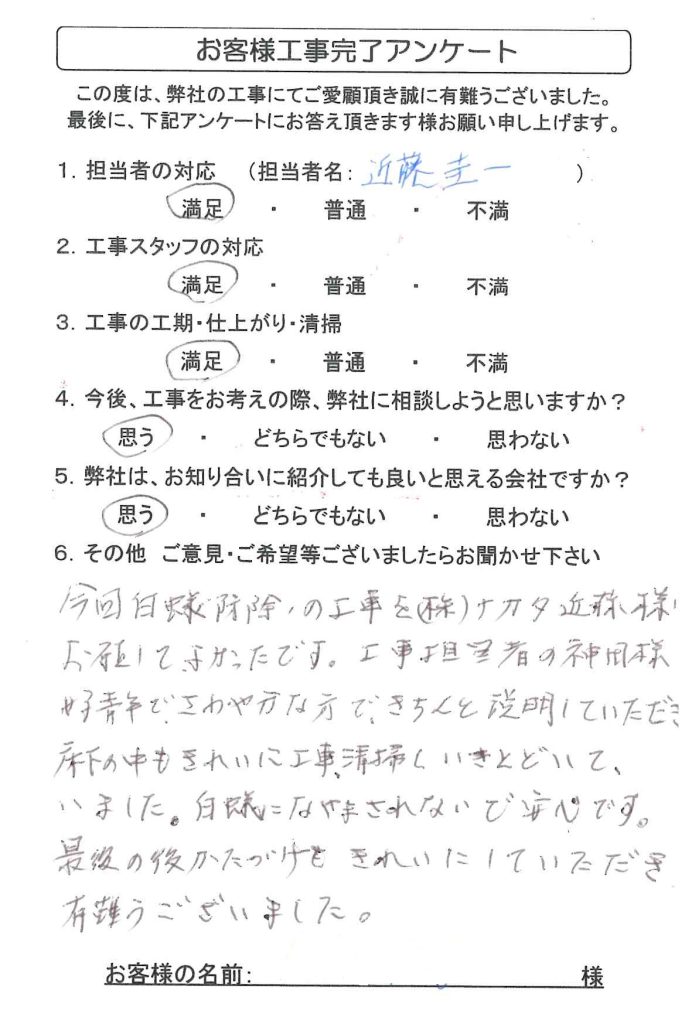 お客様工事完了アンケート
この度は、弊社の工事にてご愛顧頂き誠に有難うございました。
最後に、下記アンケートにお答え頂きます様お願い申し上げます。
1. 担当者の対応 （担当者名: 近藤圭一 ）
満足 ・ 普通 ・ 不満
2. 工事スタッフの対応
満足 ・ 普通 ・ 不満
3. 工事の工期・仕上がり・清掃
満足 ・ 普通 ・ 不満
4. 今後、工事をお考えの際、弊社に相談しようと思いますか？
思う ・ どちらでもない ・ 思わない
5. 弊社は、お知り合いに紹介しても良いと思える会社ですか？
思う ・ どちらでもない ・ 思わない
6. その他 ご意見・ご希望等ございましたらお聞かせ下さい
今回白蟻防除の工事を(株)ナカタ近藤様
お願してよかったです。工事担当者の神田様
好青年で、さわやかな方で、きちんと説明していただき
床下の中もきれいに工事、清掃しいきとどいて、
いました。白蟻になやまされないで安心です。
最後の後かたづけもきれいにしていただき
有難うございました。
お客様の名前: 様